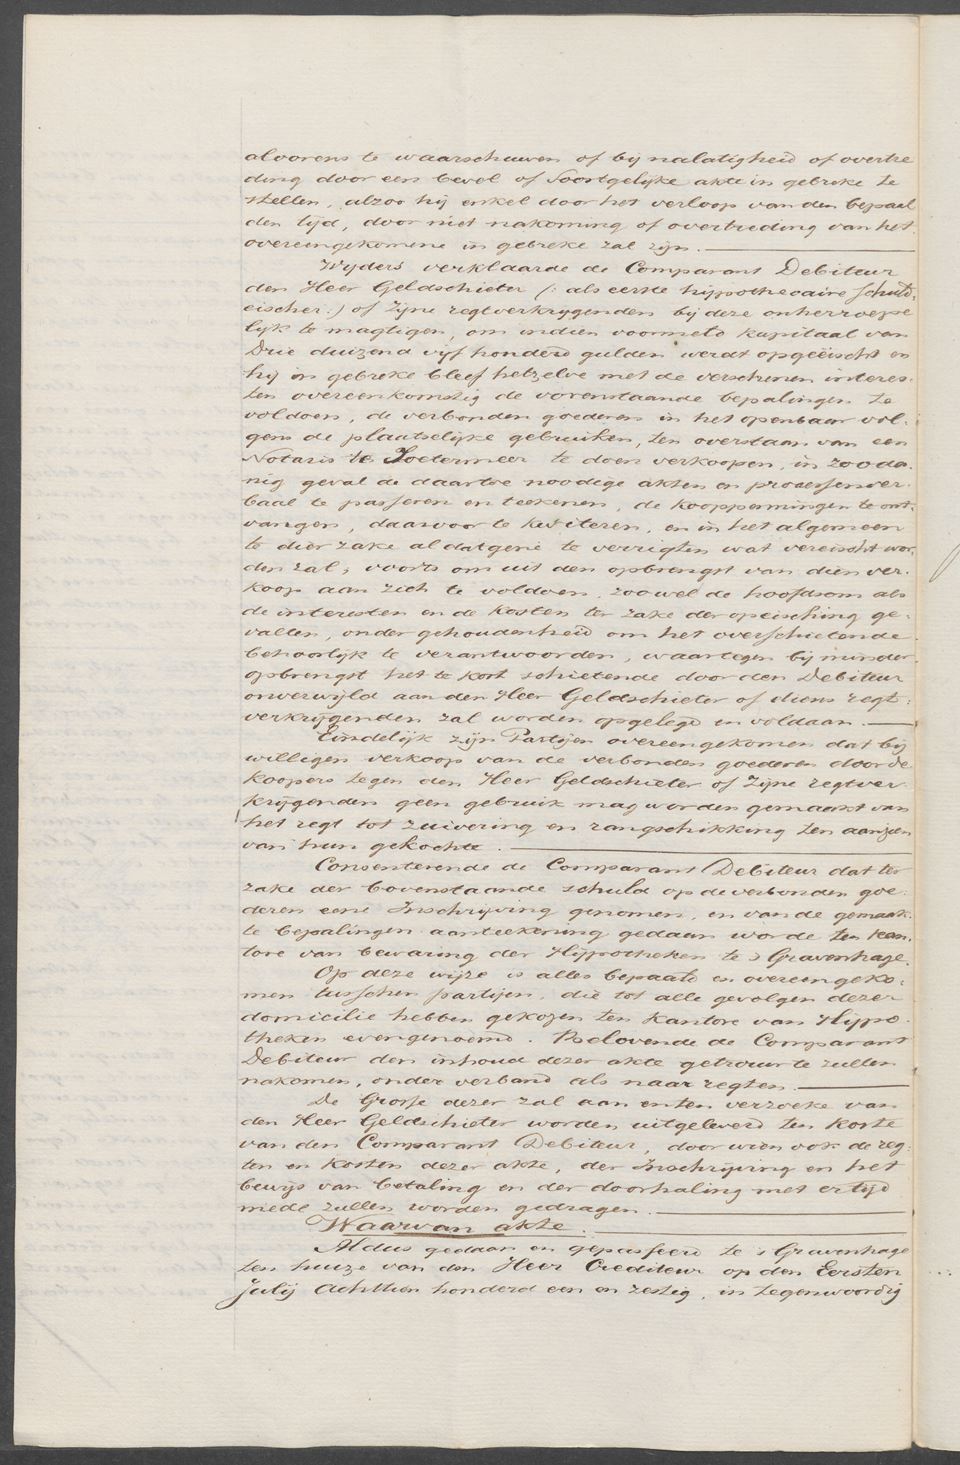 alvorens te waarschuwen of bij nalatigheid of overtre
ding door een bevel of soortgelijke akte in gebreke te
stellen, alzoo hij enkel door het verloop van den bepaal
den tijd, door niet nakoming of overtreding van het
overeengekomene in gebreke zal zijn.
Wijders verklaarde de Comparant Debiteur
den Heer Geldschieter (: als eerste hijpothecaire schuld,
eischer:) of zijne regtverkrijgenden bij deze onherroepe
lijk te magtigen, om indien voormeld kapitaal van
Drie duizend vijf honderd gulden werdt opgeëischt en
hij in gebreke bleef hetzelve met de verschenen interes.
ten overeenkomstig de vorenstaande bepalingen te
voldoen, de verbonden goederen in het openbaar vol-
gens de plaatselijke gebruiken, ten overstaan van een
Notaris te Zoetermeer te doen verkoopen, in zooda.
nig geval de daartoe noodige akten en processenver.
baal te passeren en teekenen, de kooppenningen te ont.
vangen, daarvoor te kwiteren, en in het algemeen
te dier zake al datgene te verrigten wat vereischt wor,
den zal, voorts om uit den opbrengst van dien ver.
koop aan zich te voldoen, zoowel de hoofdsom als
de interesten en de kosten ter zake der opeisching ge.
vallen, onder gehoudenheid om het overschietende
behoorlijk te verantwoorden, waartegen bij minder
opbrengst het te kort schietende door den Debiteur
onverwijld aan den Heer Geldschieter of diens regt:
verkrijgenden zal worden opgelegd en voldaan.
Eindelijk zijn Partijen overeengekomen dat bij
willigen verkoop van de verbonden goederen door de
koopers tegen den Heer Geldschieter of zijne regtver
krijgenden geen gebruik mag worden gemaakt van
het regt tot zuivering en rangschikking ten aanzien
van hun gekochte.
Consenterende de Comparant Debiteur dat ter
zake der bovenstaande schuld op de verbonden goe.
deren eene Inschrijving genomen, en van de gemaak.
te bepalingen aanteekening gedaan worde ten kan,
tore van bewaring der Hijpotheken te 's Gravenhage.
Op deze wijze is alles bepaald en overeengeko.
men tusschen partijen, die tot alle gevolgen dezer
domicilie hebben gekozen ten kantore van Hijpo.
theken evengenoemd. Belovende de Comparant
Debiteur den inhoud dezer akte getrouw te zullen
nakomen, onder verband als naar regten.
De Grosse dezer zal aan en ten verzoeke van
den Heer Geldschieter worden uitgeleverd ten koste
van den Comparant Debiteur, door wien ook de reg.
ten en kosten dezer akte, der Inschrijving en het
bewijs van betaling en der doorhaling met er tijd
mede zullen worden gedragen.
Waarvan akte.
Aldus gedaan en gepasseerd te 's Gravenhage
ten huize van den Heer Crediteur op den Eersten
Julij Achttien honderd een en zestig, in tegenwoordig